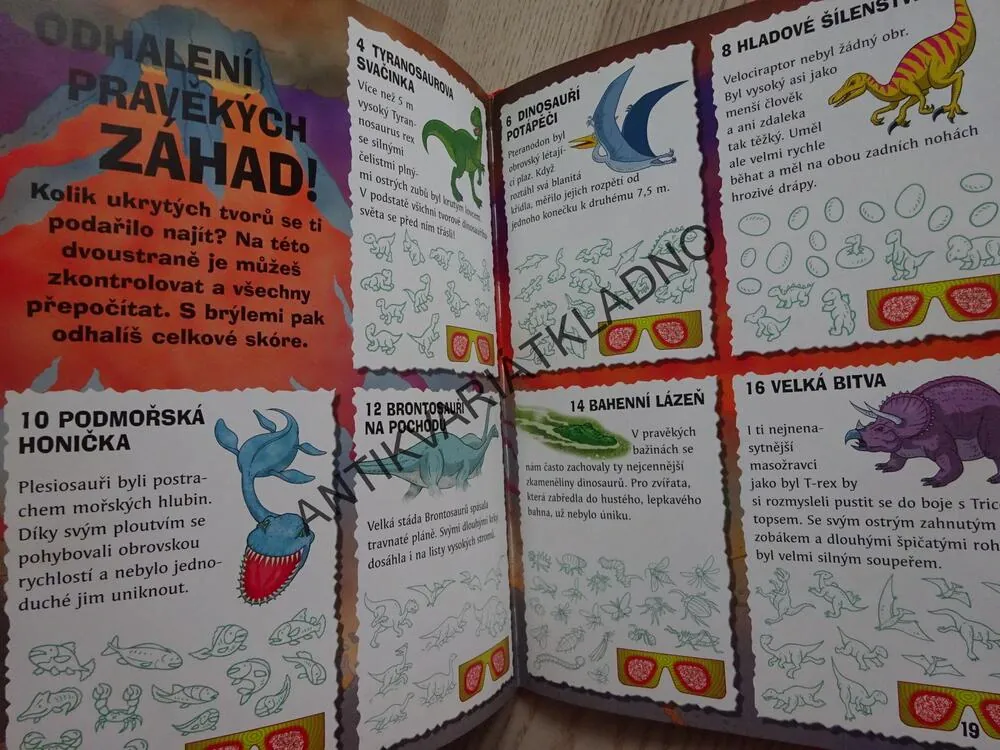 ODHALENÍ
PRAVĚKÝCH
ZÁHAD!
Kolik ukrytých tvorů se ti
podařilo najít? Na této
dvoustraně je můžeš
zkontrolovat a všechny
přepočítat. S brýlemi pak
odhalíš celkové skóre.
4 TYRANOSAUROVA
SVAČINKA
Více než 5 m
vysoký Tyran-
nosaurus rex
se silnými
čelistmi plný-
mi ostrých zubů byl krutým lovcem.
V podstatě všichni tvorové dinosauřího
světa se před ním třásli!
6 DINOSAUŘÍ
POTÁPĚČI
Pteranodon byl
obrovský létají-
cí plaz. Když
roztáhl svá blanitá
křídla, měřilo jejich rozpětí od
jednoho konečku k druhému 7,5 m.
8 HLADOVÉ ŠÍLENSTV
Velociraptor nebyl žádný obr.
Byl vysoký asi jako
menší člověk
a ani zdaleka
tak těžký. Uměl
ale velmi rychle
běhat a měl na obou zadních nohách
hrozivé drápy.
10 PODMOŘSKÁ
HONIČKA
Plesiosauři byli postra-
chem mořských hlubin.
Díky svým ploutvím se
pohybovali obrovskou
rychlostí a nebylo jedno-
duché jim uniknout.
12 BRONTOSAUŘI
NA POCHODU
Velká stáda Brontosaurů spásala
travnaté pláně. Svými dlouhými krky
dosáhla i na listy vysokých stromů.
14 BAHENNÍ LÁZEŇ
V pravěkých
bažinách se
nám často zachovaly ty nejcennější
zkameněliny dinosaurů. Pro zvířata,
která zabředla do hustého, lepkavého
bahna, už nebylo úniku.
16 VELKÁ BITVA
I ti nejnena-
sytnější
masožravci
jako byl T-rex by
si rozmysleli pustit se do boje s Tric
topsem. Se svým ostrým zahnutým
zobákem a dlouhými špičatými roh
byl velmi silným soupeřem.
19
ANTIKVARIÁTKLADNO